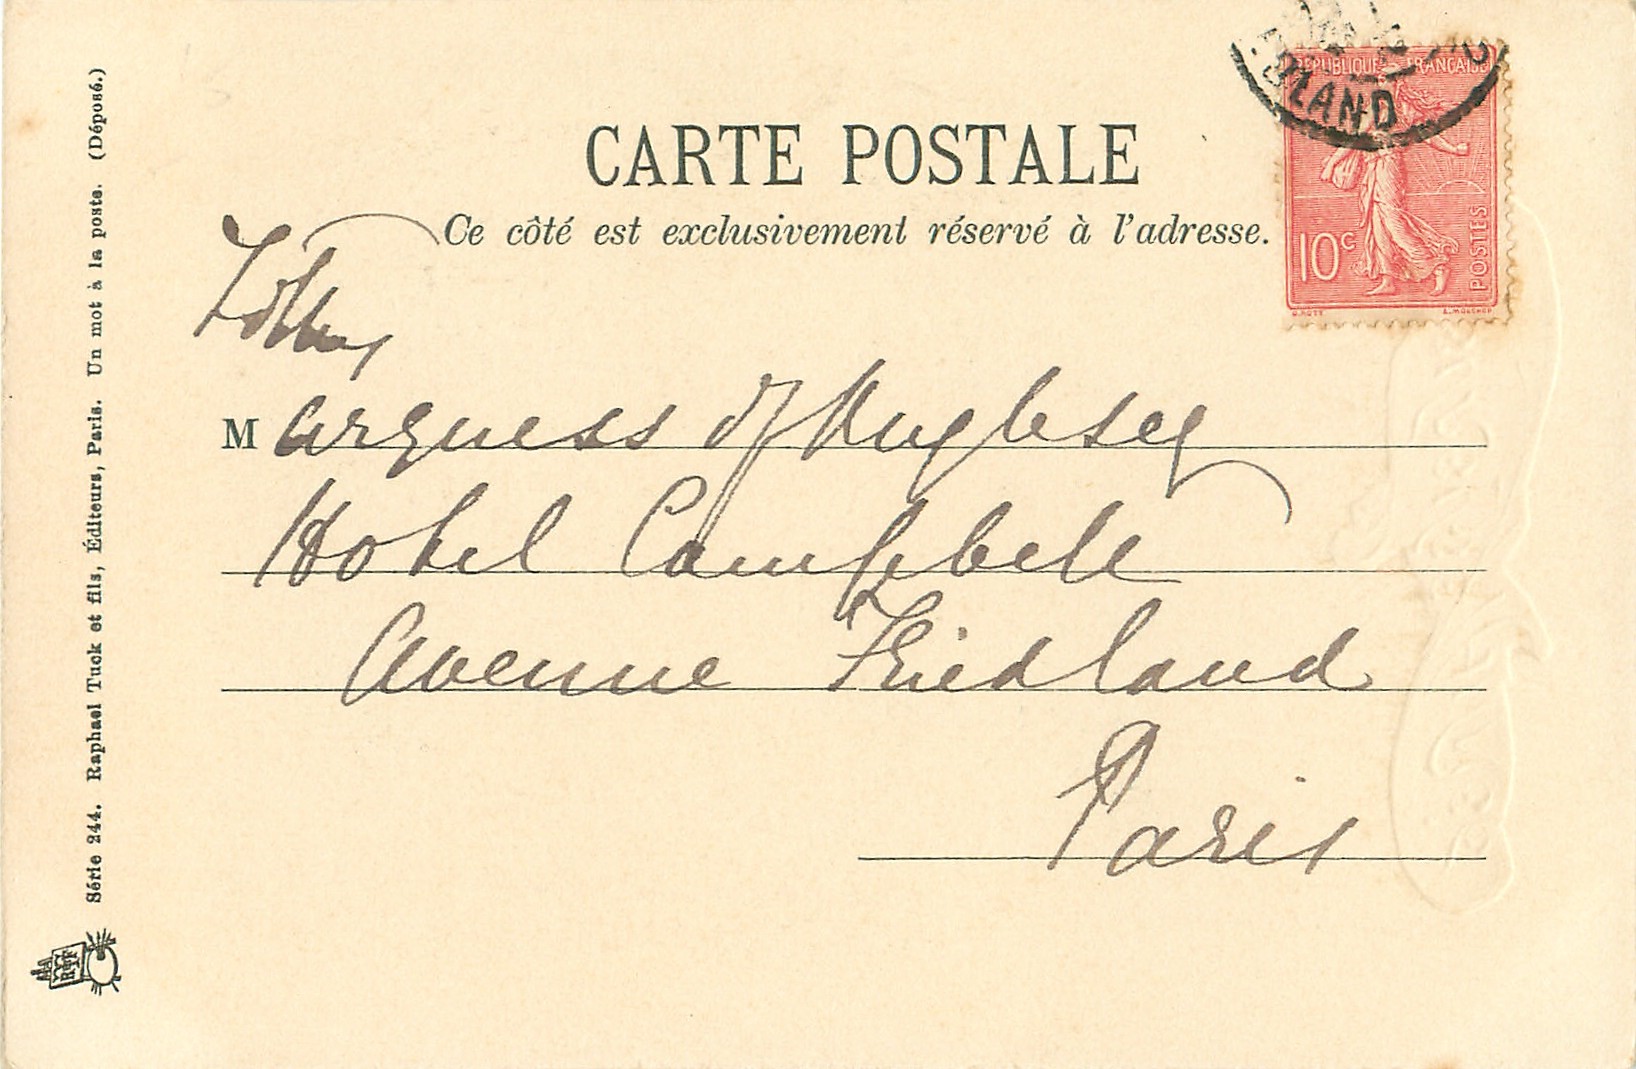 RÉPUBLIQUE FRANÇAISE
LAND
CARTE POSTALE
Ce côté est exclusivement réservé à l'adresse.
10c
POSTES
Marquess of Anglesey
Hotel Campbell
Avenue Friedland
Paris
Série 244. Raphael Tuck et fils, Éditeurs, Paris. Un mot à la poste. (Déposé.)